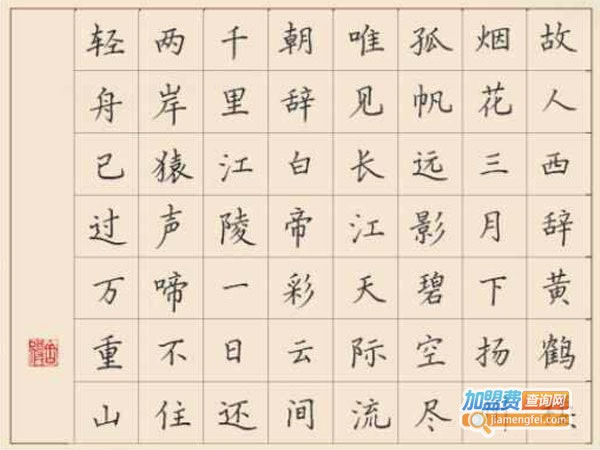 故人西辞黄鹤
烟花三月下扬
孤帆远影碧空尽
唯见长江天际流
朝辞白帝彩云间
千里江陵一日还
两岸猿声啼不住
轻舟已过万重山
加盟费查询网
jiamengfei.com